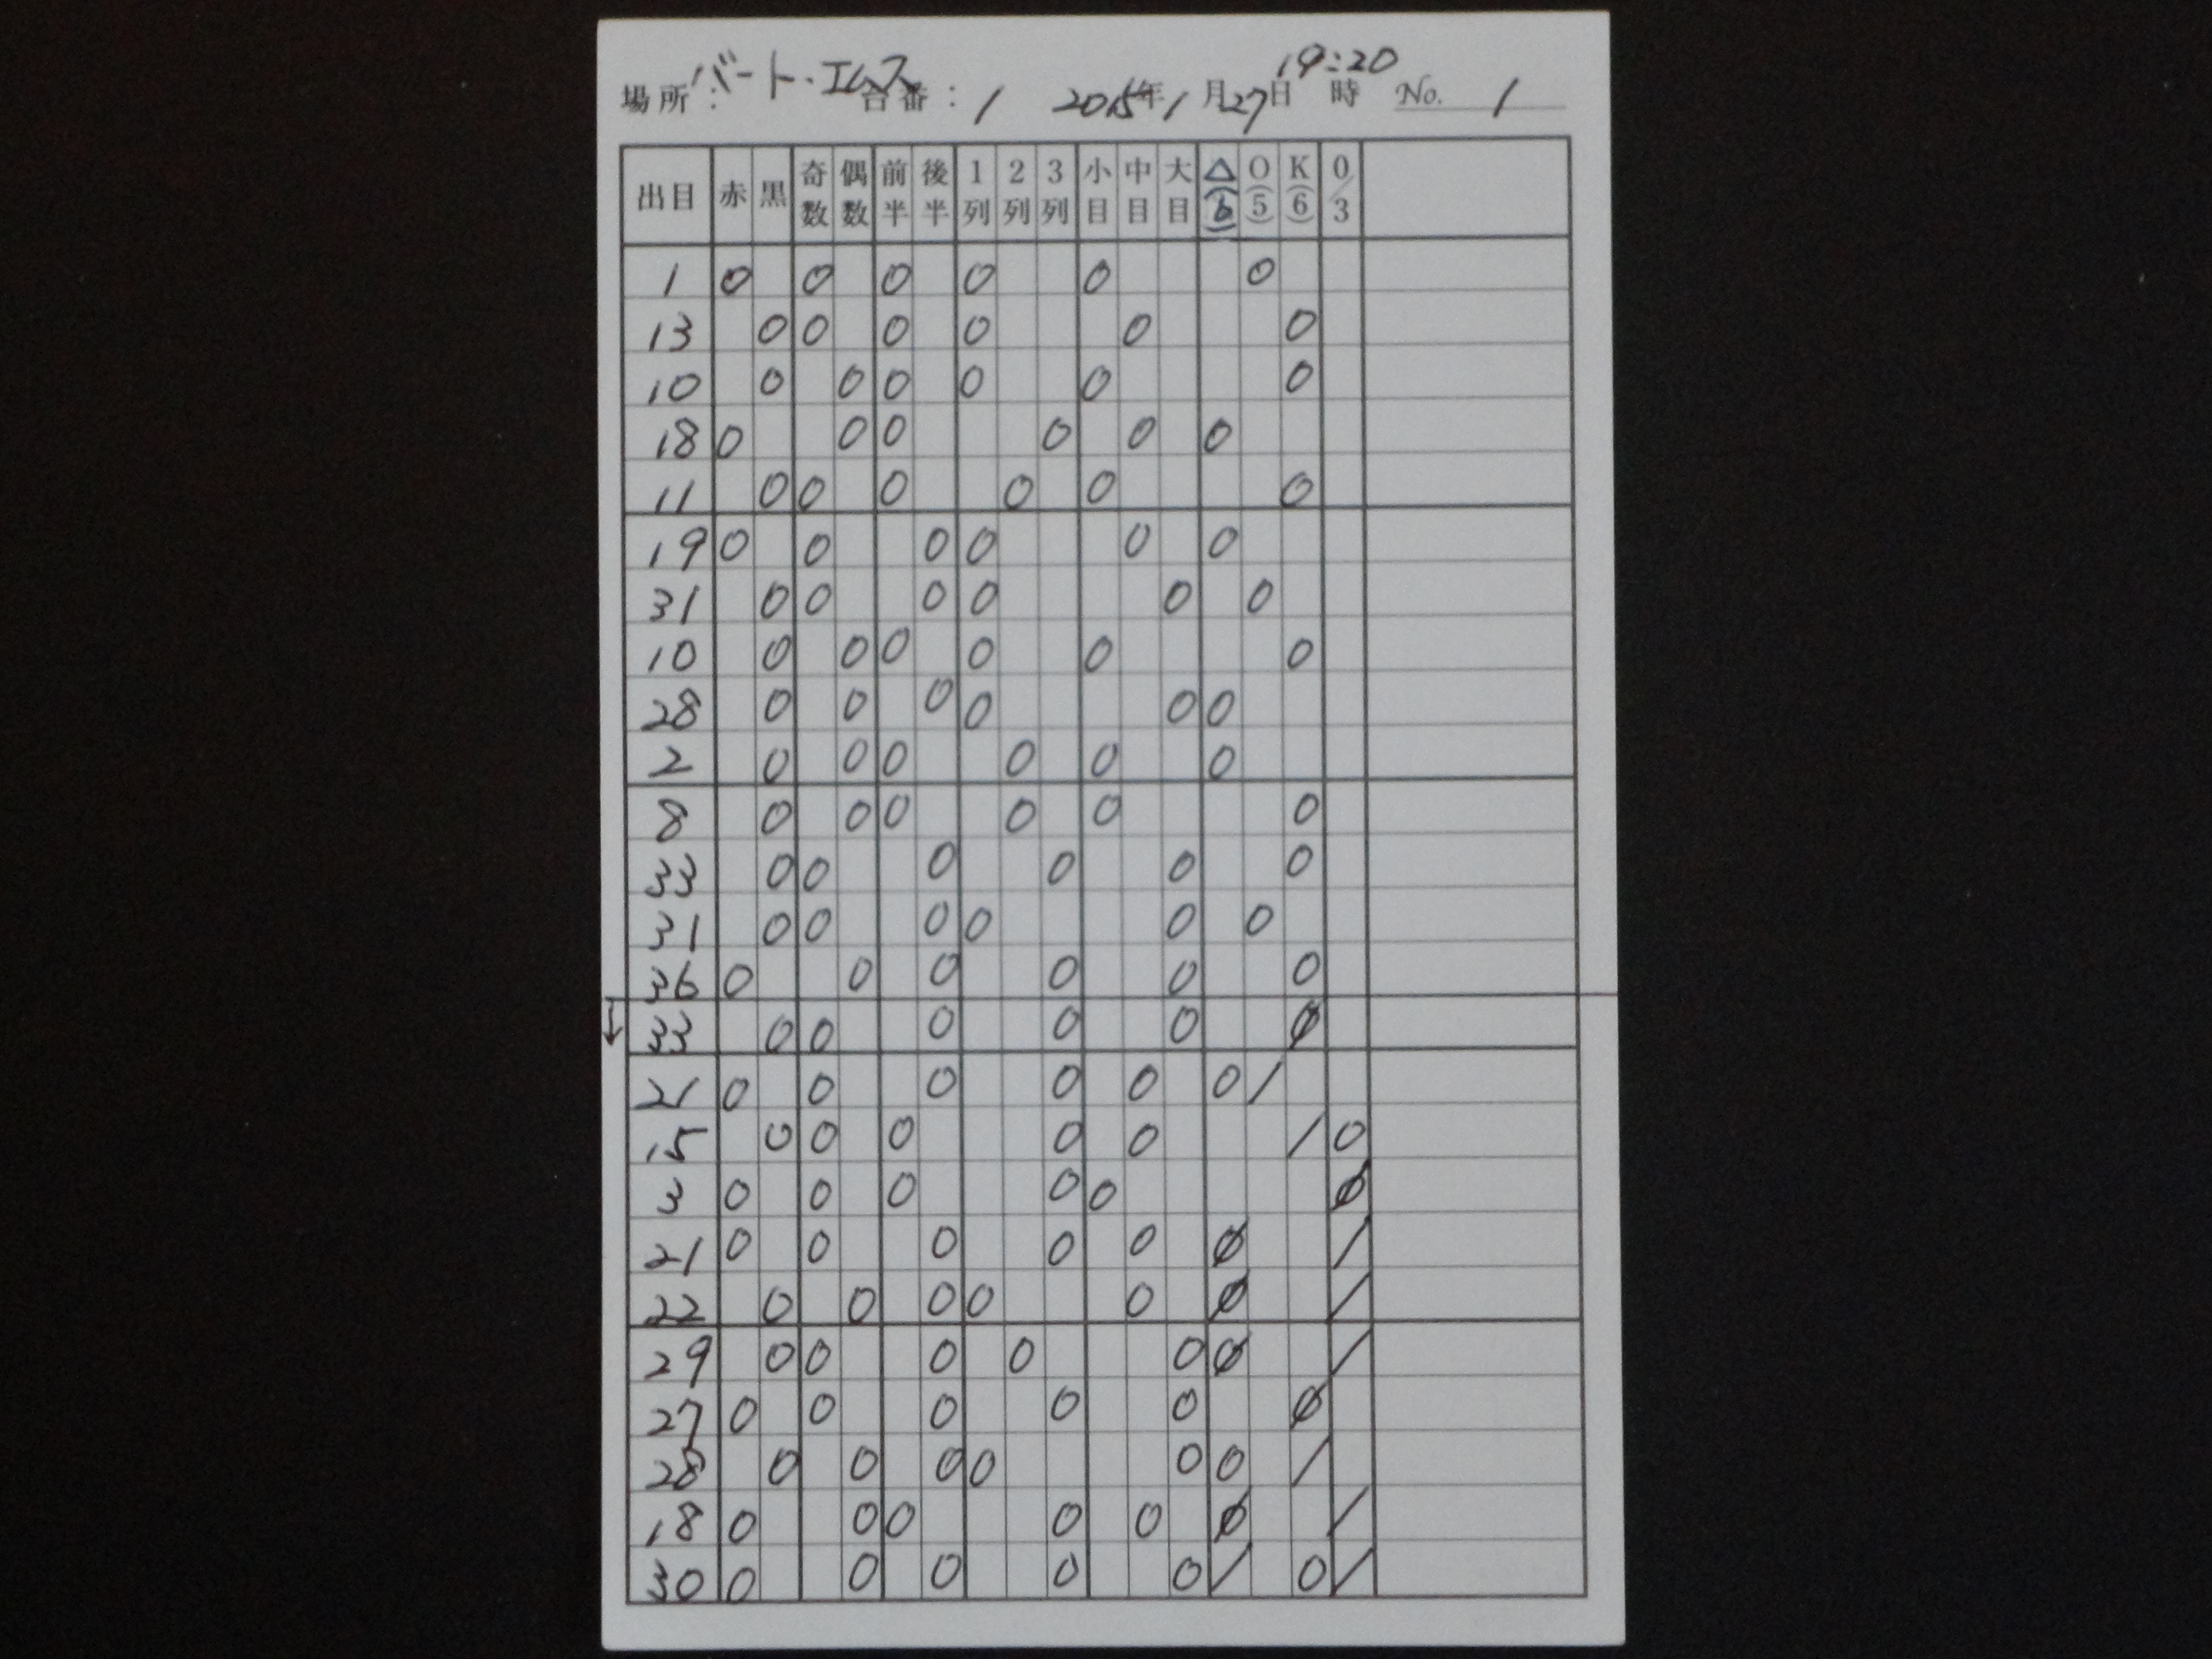 場所：バート・エムス 台番：1 2015年1月27日 19:20時 No. 1
出目 赤 黒 奇数 偶数 前半 後半 1列 2列 3列 小目 中目 大目 △(6) O(5) K(6) 0/3
1 0 0 0 0 0 0
13 0 0 0 0 0 0
10 0 0 0 0 0 0
18 0 0 0 0 0 0
11 0 0 0 0 0 0
19 0 0 0 0 0 0
31 0 0 0 0 0 0
10 0 0 0 0 0 0
28 0 0 0 0 0 0
2 0 0 0 0 0 0
8 0 0 0 0 0 0
33 0 0 0 0 0 0
31 0 0 0 0 0 0
36 0 0 0 0 0 0
↓ 33 0 0 0 0 0 Ø
21 0 0 0 0 0 0 /
15 0 0 0 0 0 / 0
3 0 0 0 0 0 Ø
21 0 0 0 0 0 Ø /
22 0 0 0 0 0 Ø /
29 0 0 0 0 0 Ø /
27 0 0 0 0 0 Ø
28 0 0 0 0 0 0 /
18 0 0 0 0 0 Ø /
30 0 0 0 0 0 / 0 /